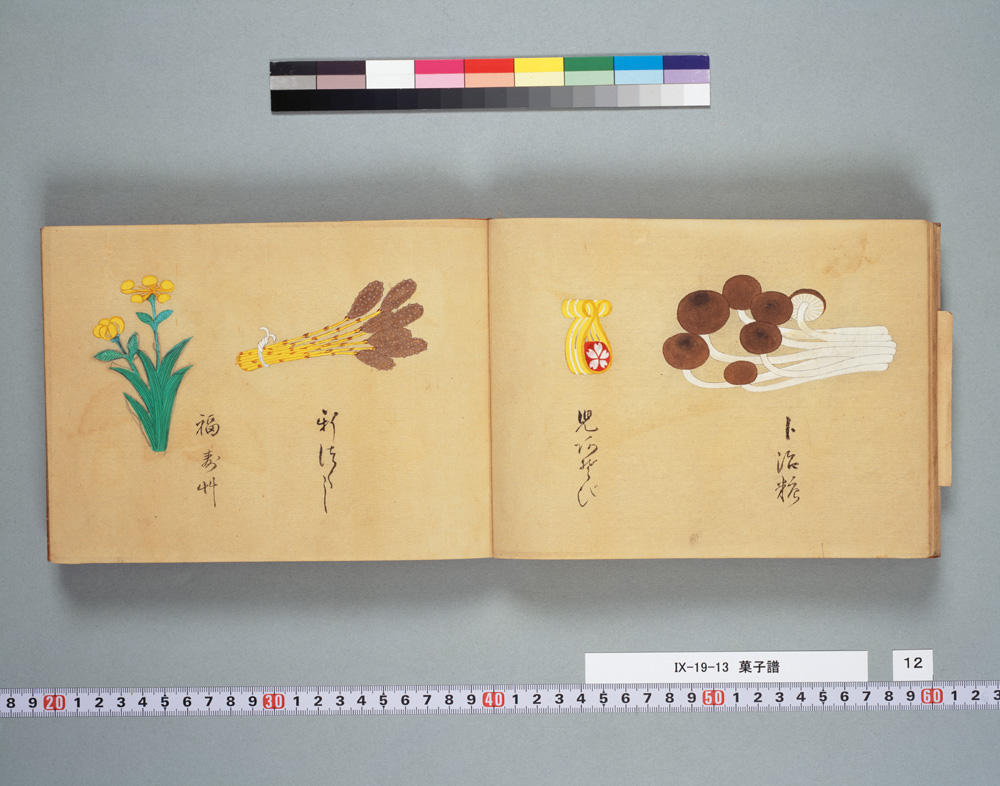 卜治糖
新つくし
福寿艸
IX-19-13 菓子譜
12
8 9 20 1 2 3 4 5 6 7 8 9 30 1 2 3 4 5 6 7 8 9 40 1 2 3 4 5 6 7 8 9 50 1 2 3 4 5 6 7 8 9 60 1 2 3